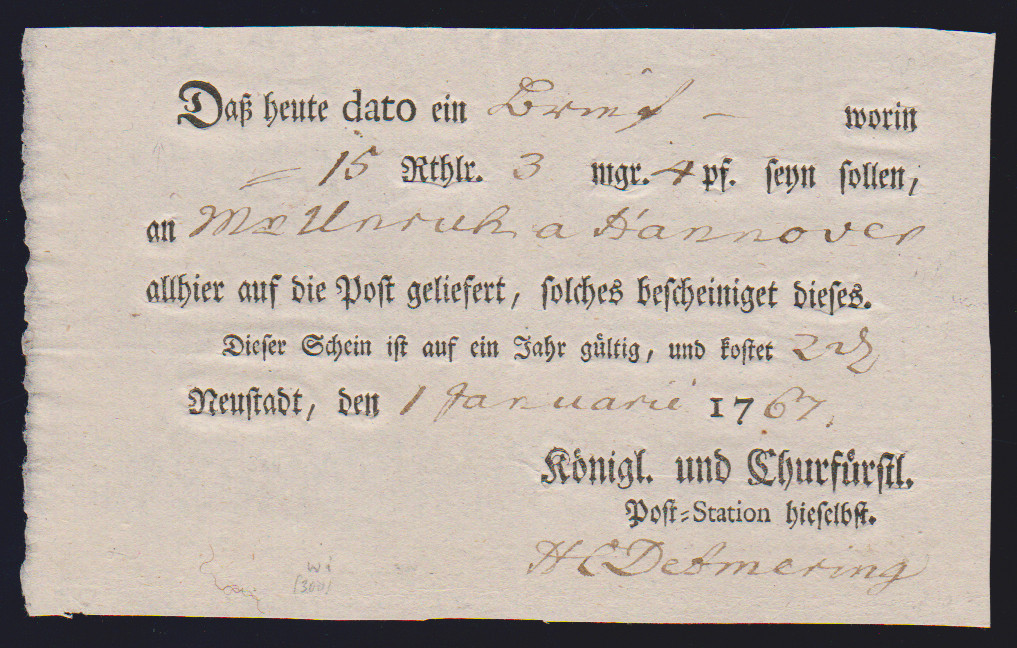 Daß heute dato ein Brief – worin
= 15 Rthlr. 3 mgr. 4 pf. seyn sollen,
an Mr Unruh a Hannover
allhier auf die Post geliefert, solches bescheiniget dieses.
Dieser Schein ist auf ein Jahr gültig, und kostet 2
Neustadt, den 1 Januarii 1767.
Königl. und Churfürstl.
Post=Station hieselbst.
H C Detmering
wi